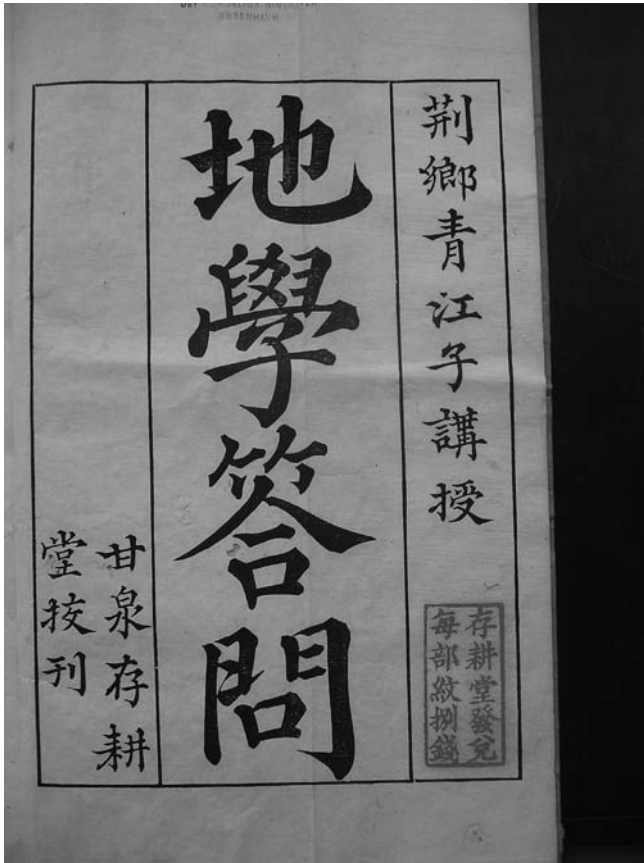 荆鄉青江子講授
存耕堂發兌
每部紋捌錢
地學答問
甘泉存耕
堂挍刊